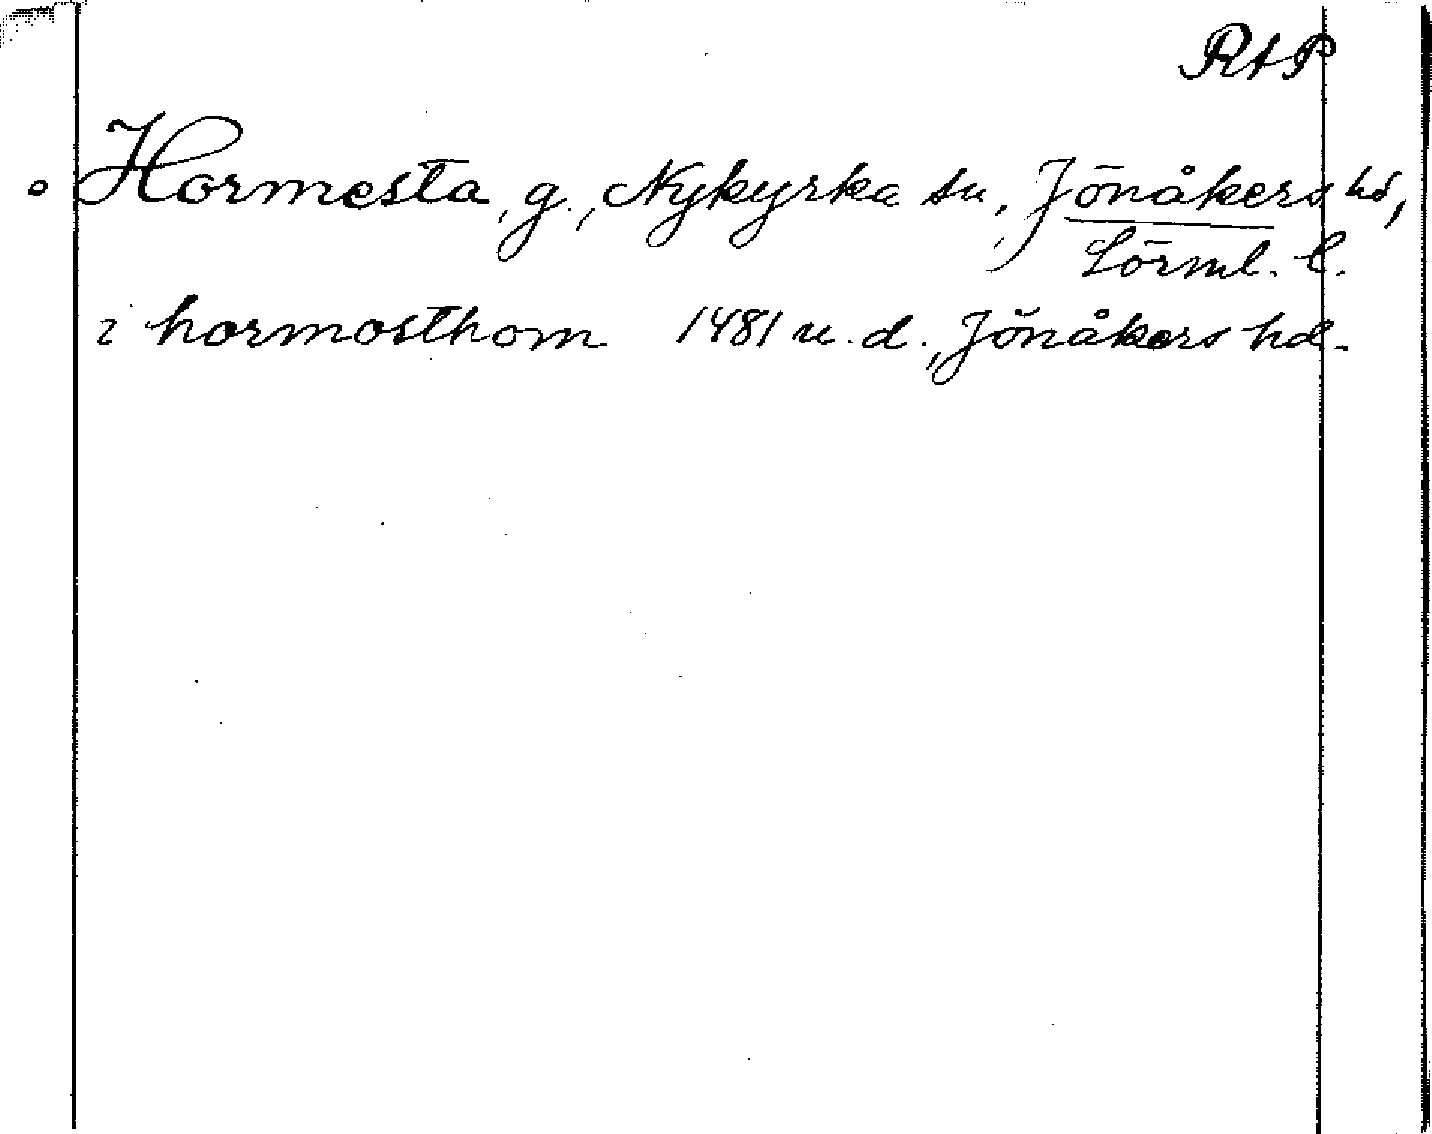 RAP
° Hormesta, g., Nykyrka sn, Jönåkers hd,
Sörml. l.
i hormosthom 1481 u. d., Jönåkers hd.